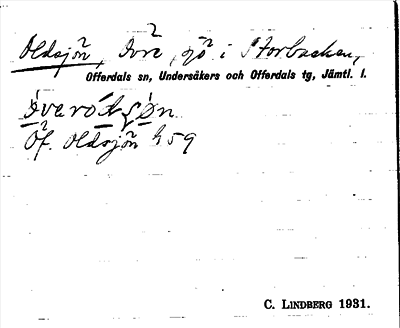 Oldsjön, Övre, sjö i Storbacken,
Offerdals sn, Undersåkers och Offerdals tg, Jämtl. l.
Öf. Oldsjön h 59
C. LINDBERG 1931.